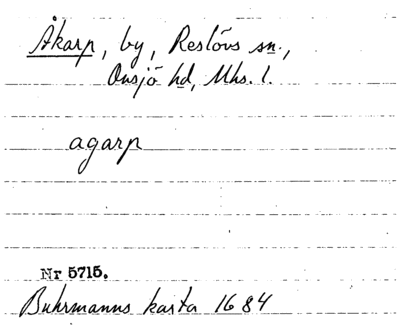 Åkarp, by, Reslövs sn.,
Onsjö hd, Mhs. l.
agarp
Nr 5715.
Buhrmanns karta 1684